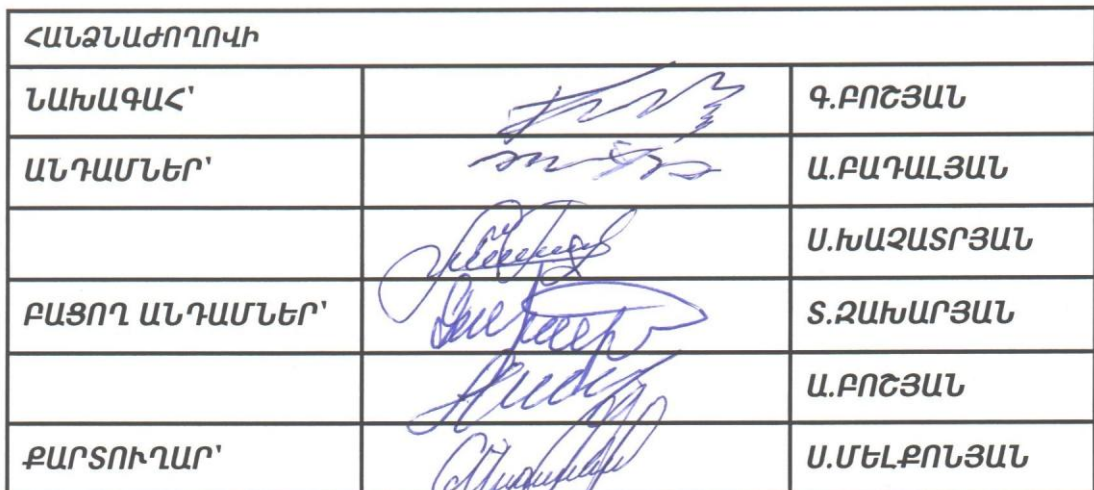 ՀԱՆՁՆԱԺՈՂՈՎԻ
ՆԱԽԱԳԱՀ՝ Գ.ԲՈՇՅԱՆ
ԱՆԴԱՄՆԵՐ՝ Ա.ԲԱԴԱԼՅԱՆ
Ս.ԽԱՉԱՏՐՅԱՆ
ԲԱՑՈՂ ԱՆԴԱՄՆԵՐ՝ Տ.ԶԱԽԱՐՅԱՆ
Ա.ԲՈՇՅԱՆ
ՔԱՐՏՈՒՂԱՐ՝ Ս.ՄԵԼՔՈՆՅԱՆ